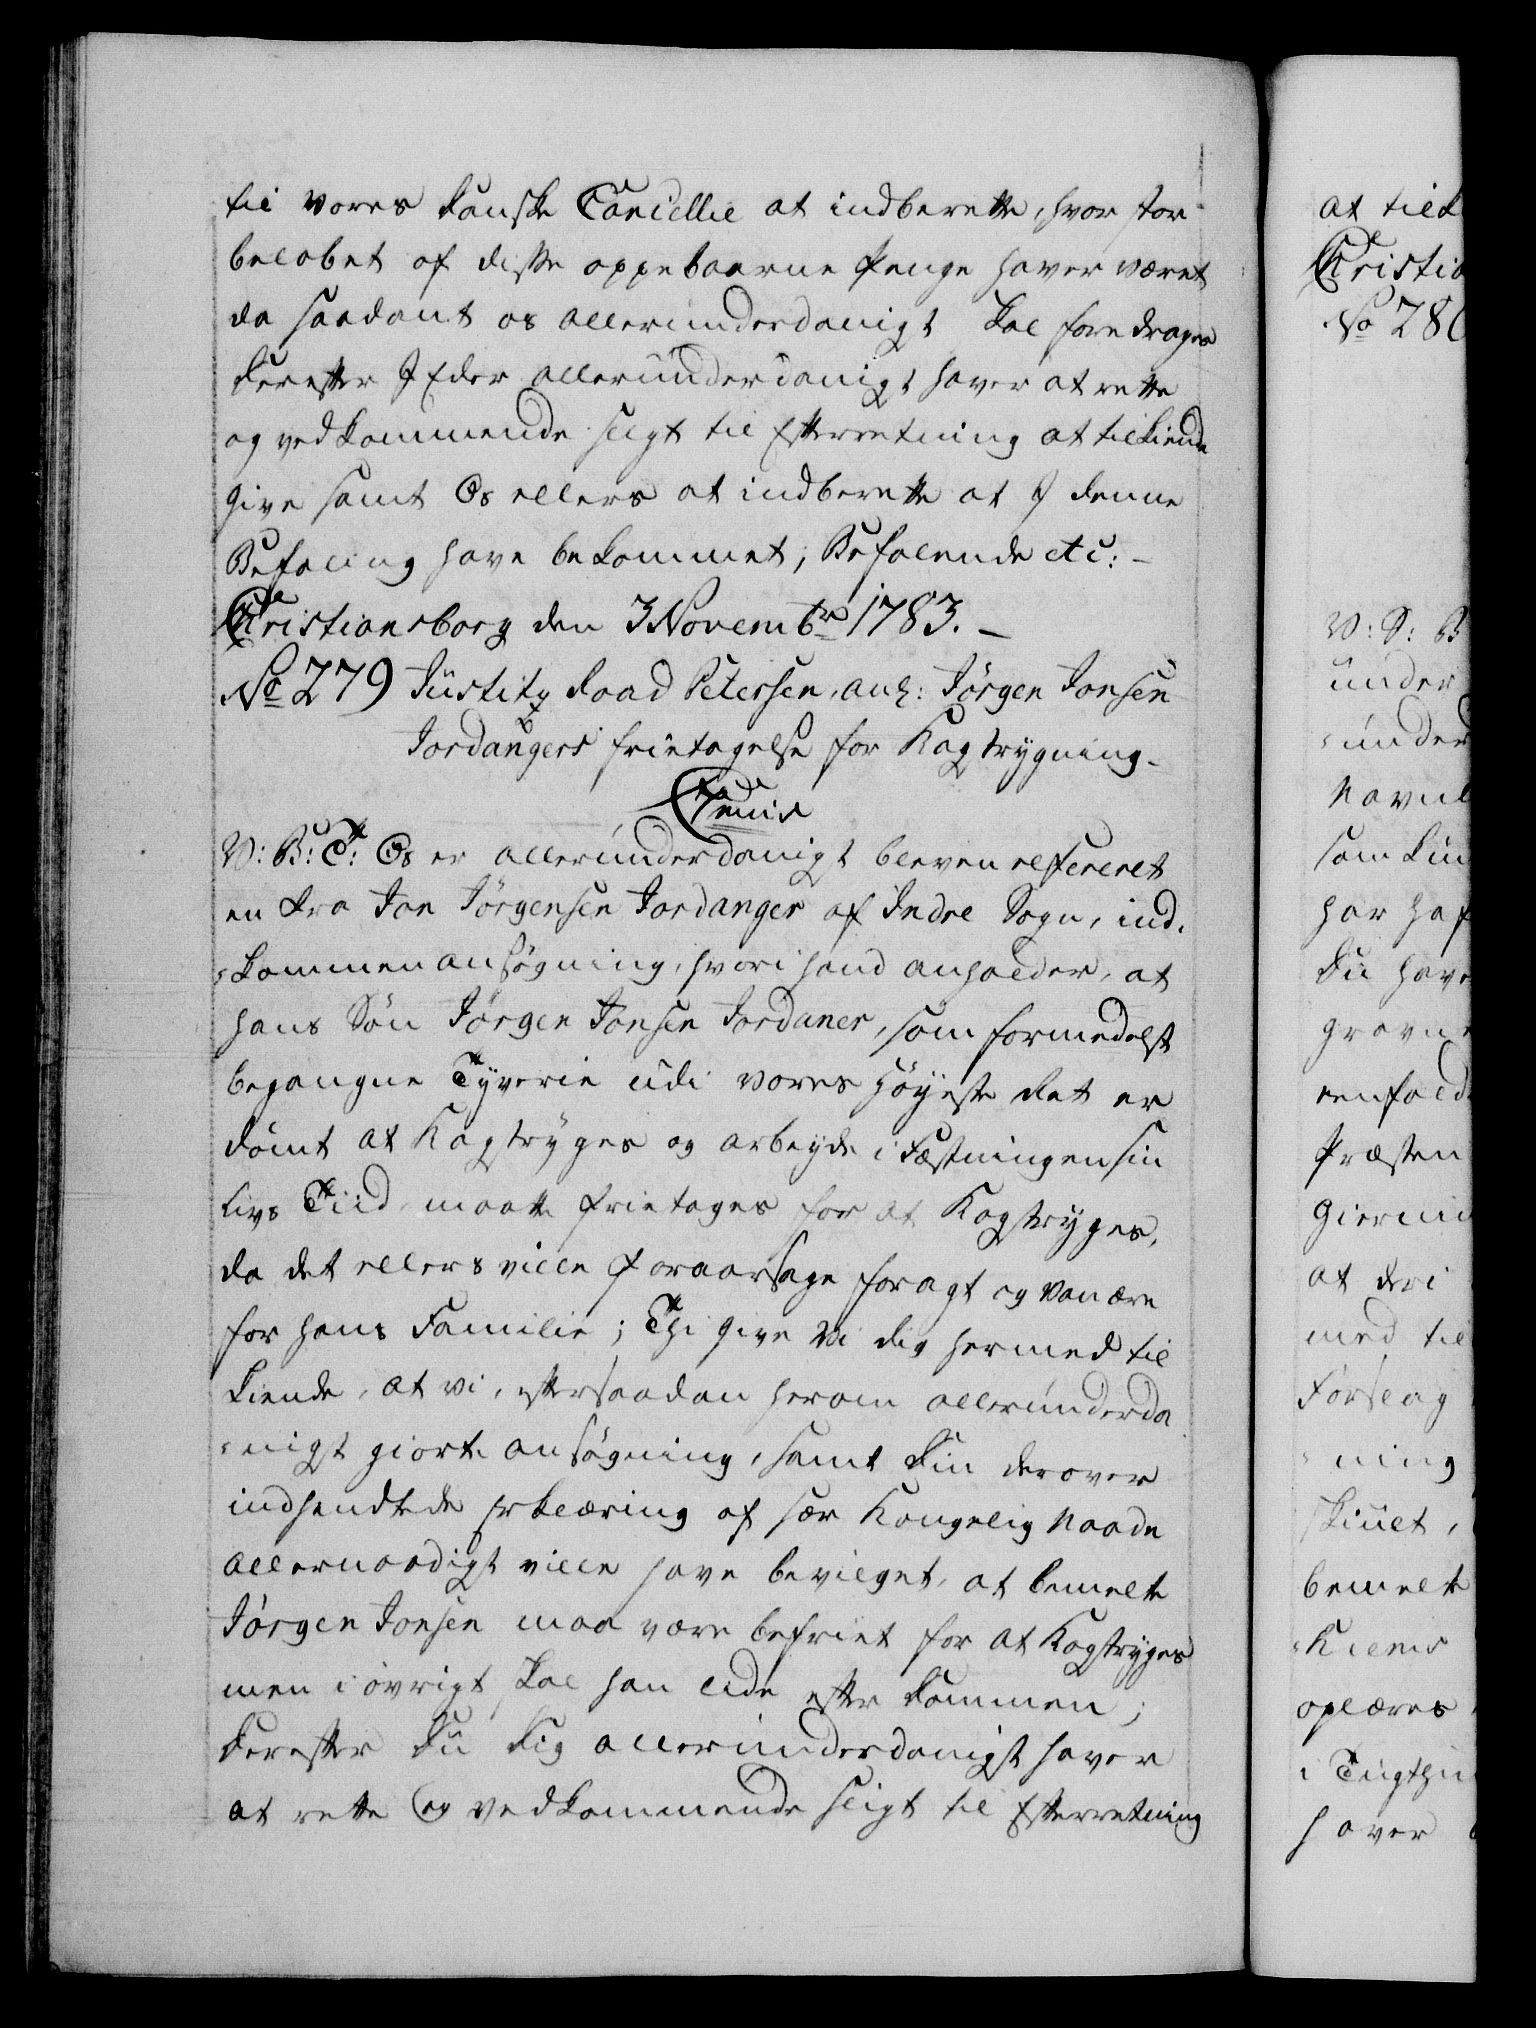 til vores danske Cancellie at indberette, hvor stor
beløbet af disse oppebaarne Penge haver været
da saadant os allerunderdanigst skal foredrages
Derefter I Eder allerunderdanigst haver at rette
og vedkommende sligt til Efterretning at tilkiende
give samt Os ellers at indberette at I denne
Befaling have bekommet; Befalende etc: -
Christiansborg den 3 Novembr 1783. -
No 279 Justitz Raad Petersen, anl: Jørgen Jonsen
Jordangers frietagelse for Kagstrygning -
C 7mus
V: B: T: Os er allerunderdanigst bleven refereret
en fra Jon Jørgensen Jordanger af Indre Sogn, ind,
=kommen ansøgning, hvori hand anholder, at
hans Søn Jørgen Jonsen Jordaner, som formedelst
begangne Tyverie udi vores Høyeste Ret er
dømt at Kagstryges og arbeyde i Fæstningen sin
Livs Tiid, maatte frietages for at Kagstryges,
da det ellers ville foraarsage foragt og vanære
for hans Familie; Thi give Vi dig hermed til
kiende, at vi, efter saadan herom allerunderda
=nigst giorte ansøgning, samt Din derover
indsendte Erklæring af sær Kongelig Naade
allernaadigst ville have bevilget, at bemelte
Jørgen Jonsen maa være befriet for at Kagstryges
men i øvrigt skal han lide efter Dommen;
Derefter Du Dig allerunderdanigst haver
at rette og vedkommende sligt til Efterretning
at tilk
Christia
No 280
V: S: B
under
=under
Navnl
som kun
har haf
Du have
gravn
eenfold
Præsten
Giernin
at dei
med til
Forslag
=ning
skiult,
bemelte
oplæres
i Tugthu
haver